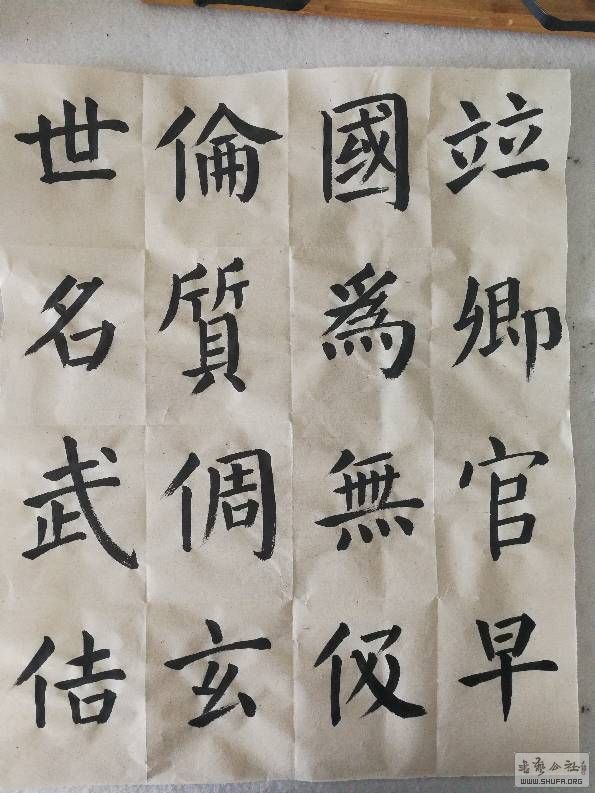 竝卿官早
國爲無伇
倫質倜玄
世名武佶
WWW.SHUFA.ORG